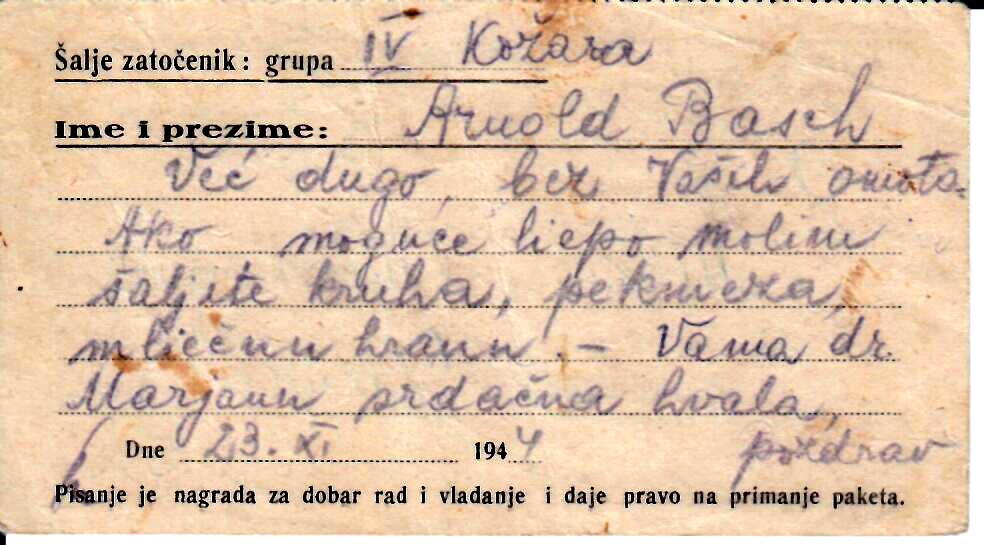 Šalje zatočenik: grupa IV Kožara
Ime i prezime: Arnold Basch
Već dugo, bez Vaših omota.
Ako moguće liepo molim
šaljete kruha, pekmeza,
mliečnu hranu. - Vama, dr.
Marjanu srdačna hvala,
pozdrav
Dne 23. XI 1944
Pisanje je nagrada za dobar rad i vladanje i daje pravo na primanje paketa.